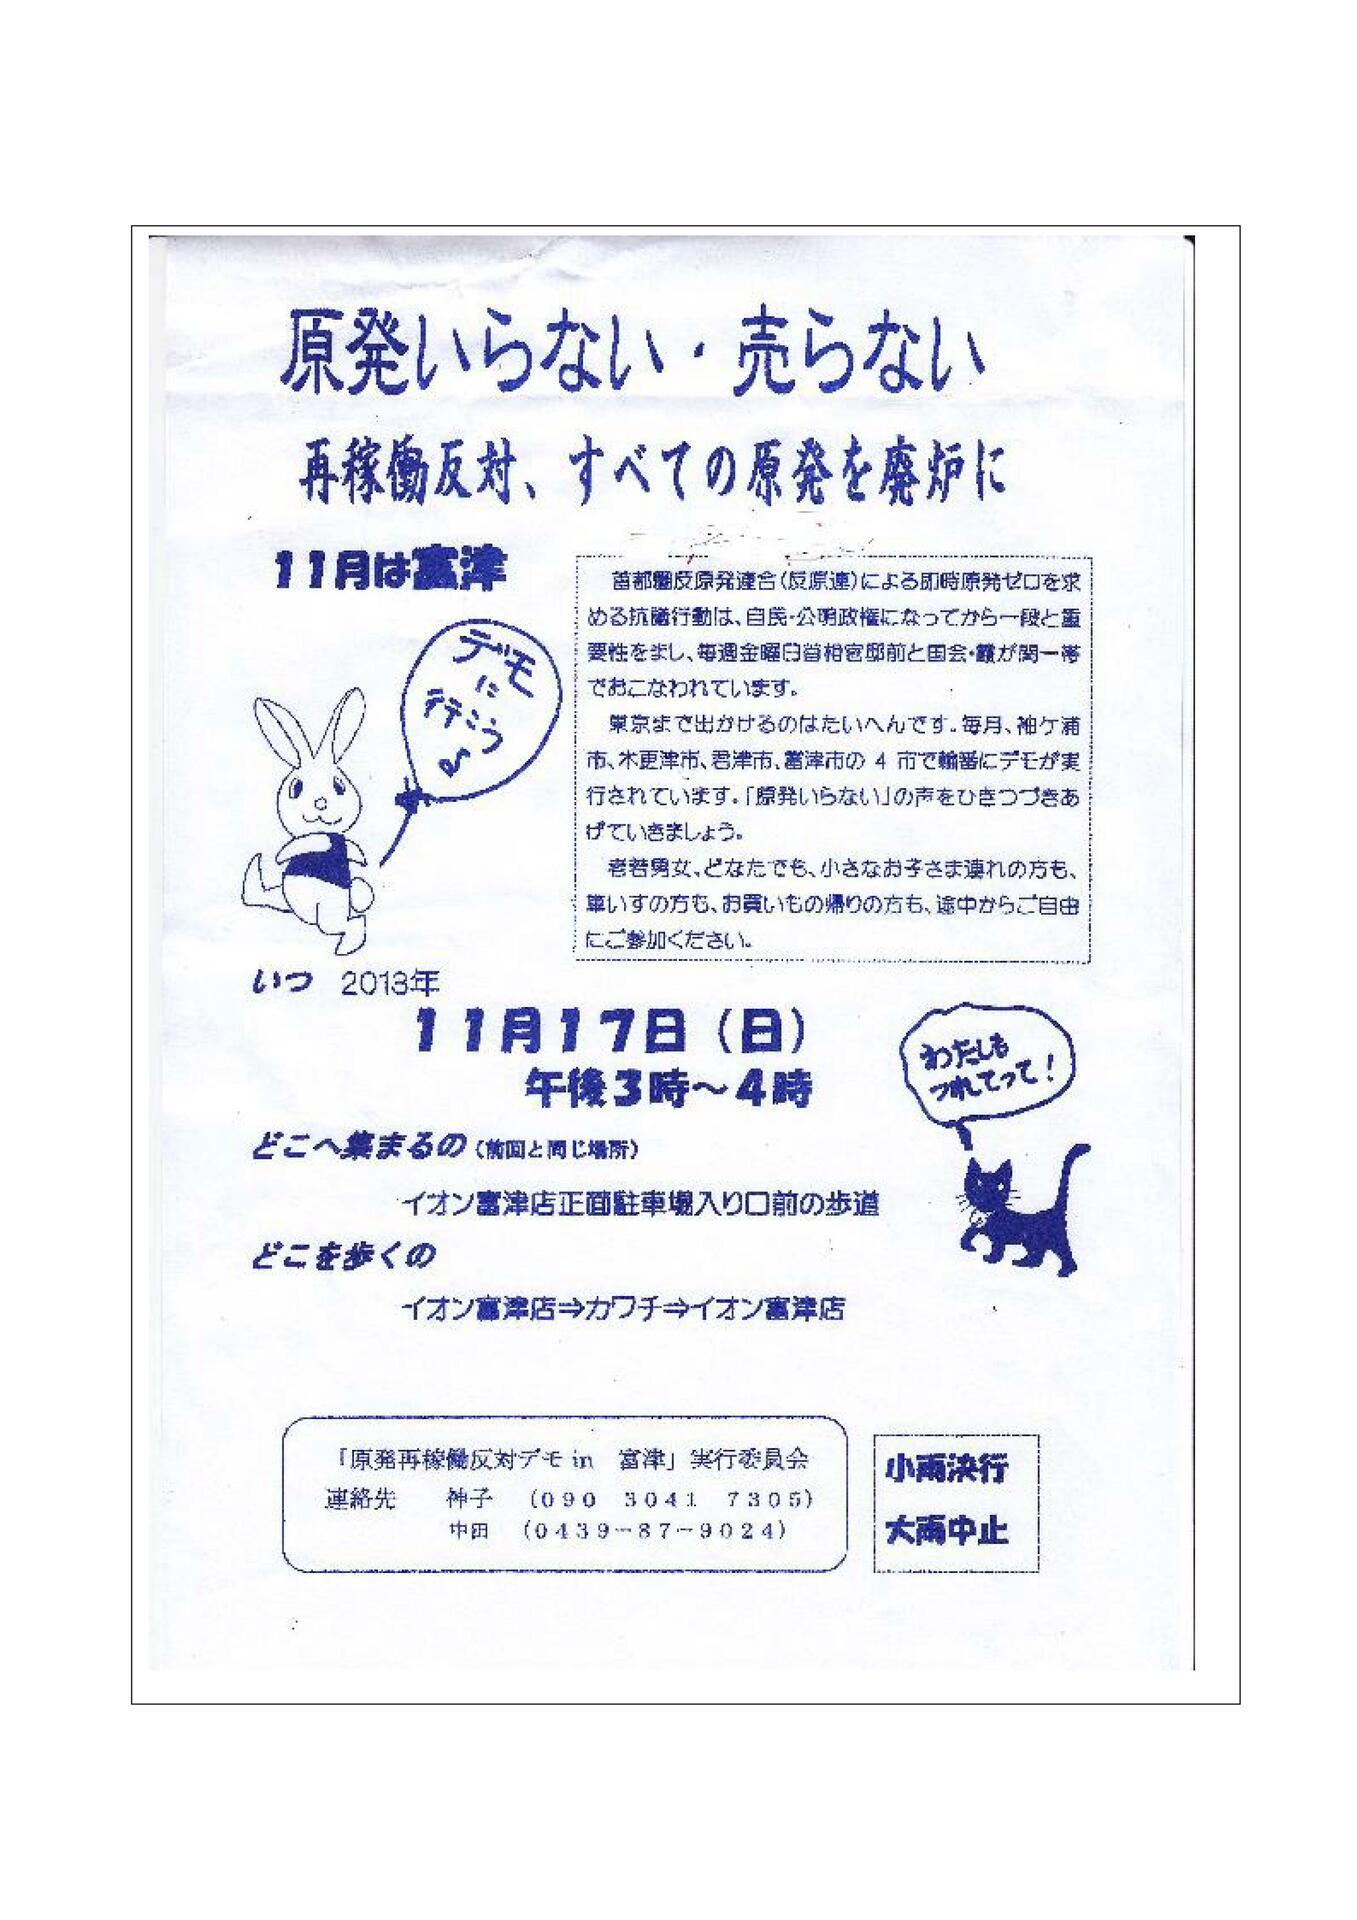 原発いらない・売らない
再稼働反対、すべての原発を廃炉に
11月は富津
デモ
に
行こう
♪
首都圏反原発連合(反原連)による即時原発ゼロを求
める抗議行動は、自民・公明政権になってから一段と重
要性をまし、毎週金曜日首相官邸前と国会・霞が関一帯
でおこなわれています。
東京まで出かけるのはたいへんです。毎月、袖ケ浦
市、木更津市、君津市、富津市の 4 市で輪番にデモが実
行されています。「原発いらない」の声をひきつづきあ
げていきましょう。
老若男女、どなたでも、小さなお子さま連れの方も、
車いすの方も、お買いもの帰りの方も、途中からご自由
にご参加ください。
いつ 2013年
11月17日（日）
午後3時～4時
わたしも
つれてって！
どこへ集まるの（前回と同じ場所）
イオン富津店正面駐車場入り口前の歩道
どこを歩くの
イオン富津店⇒カワチ⇒イオン富津店
「原発再稼働反対デモ in 富津」実行委員会
連絡先 神子 （090 3041 7305）
中田 （0439－87－9024）
小雨決行
大雨中止